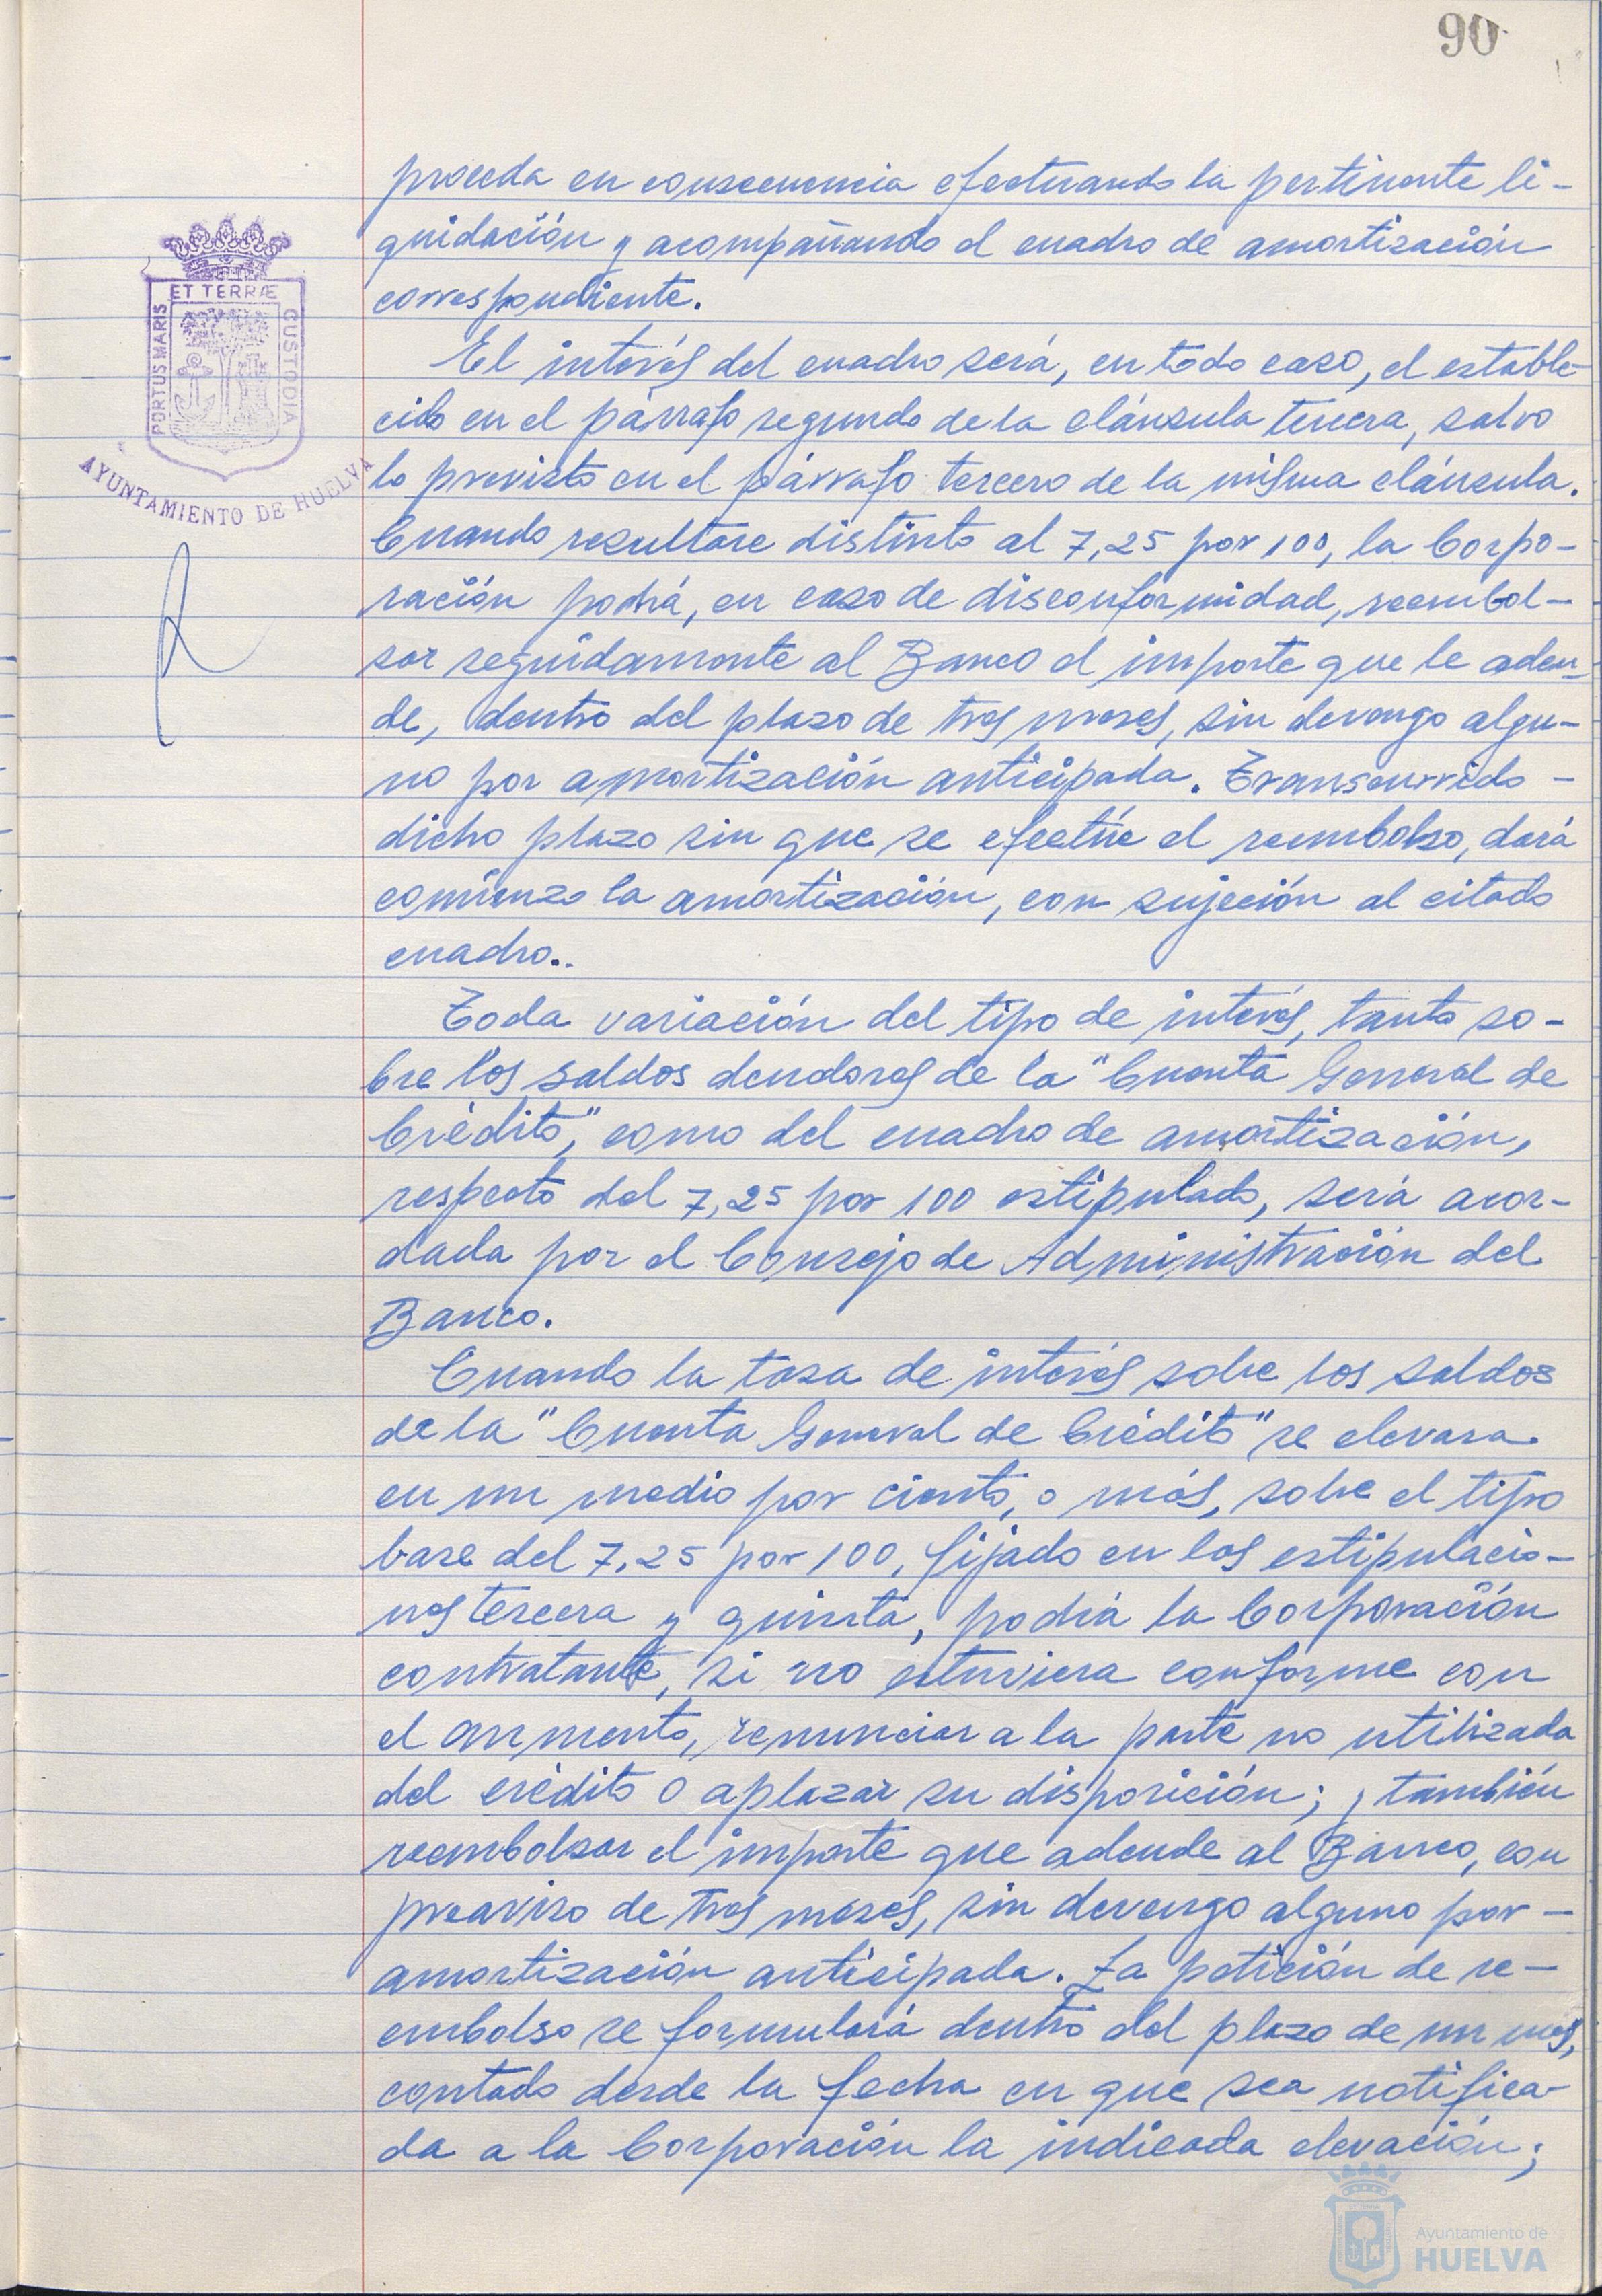 90
proceda en consecuencia efectuando la pertinente li-
quidación y acompañando el cuadro de amortización
correspondiente.
El interés del cuadro será, en todo caso, el estable-
cido en el párrafo segundo de la cláusula tercera, salvo
lo previsto en el párrafo tercero de la misma cláusula.
Cuando resultare distinto al 7,25 por 100, la Corpo-
ración podrá, en caso de disconformidad, reembol-
sar seguidamente al Banco el importe que le adeu-
de, dentro del plazo de tres meses, sin devengo algu-
no por amortización anticipada. Transcurrido -
dicho plazo sin que se efectúe el reembolso, dará
comienzo la amortización, con sujeción al citado
cuadro..
Toda variación del tipo de interés, tanto so-
bre los saldos deudores de la "Cuenta General de
Crédito", como del cuadro de amortización,
respecto del 7,25 por 100 estipulado, será acor-
dada por el Consejo de Administración del
Banco.
Cuando la tasa de interés sobre los saldos
de la "Cuenta General de Crédito" se elevara
en un medio por ciento, o más, sobre el tipo
base del 7,25 por 100, fijado en las estipulacio-
nes tercera y quinta, podrá la Corporación
contratante, si no estuviera conforme con
el aumento, renunciar a la parte no utilizada
del crédito o aplazar su disposición; y también
reembolsar el importe que adeude al Banco, con
preaviso de tres meses, sin devengo alguno por -
amortización anticipada. La petición de re-
embolso se formulará dentro del plazo de un mes,
contado desde la fecha en que sea notifica-
da a la Corporación la indicada elevación;
PORTUS MARIS
ET TERRÆ
CUSTODIA
AYUNTAMIENTO DE HUELVA
Ayuntamiento de
HUELVA